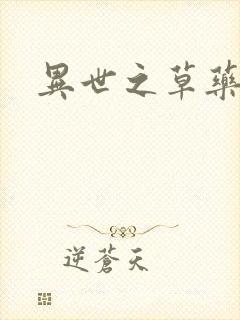 異世之草藥
逆蒼天